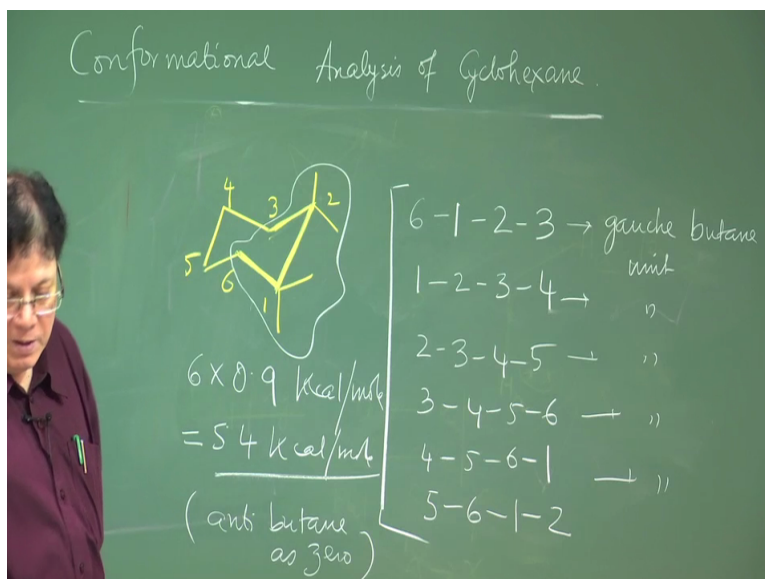 Conformational Analysis of Cyclohexane.
4
3
2
5
6
1
6 × 0.9 Kcal/mole
= 5 4 Kcal/mole
(anti butane
as zero)
6-1-2-3 → gauche butane
unit
1-2-3-4 → "
2-3-4-5 → "
3-4-5-6 → "
4-5-6-1 → "
5-6-1-2